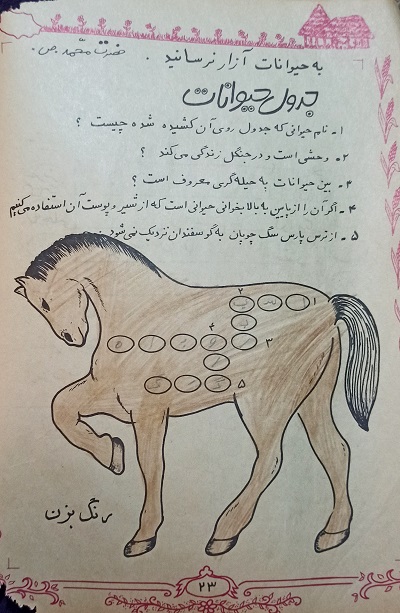 به حیوانات آزار نرسانید . حضرت محمد .ص.
جدول حیوانات
۱ - نام حیوانی که جدول روی آن کشیده شده چیست ؟
۲ - وحشی است و در جنگل زندگی می کند ؟
۳ - بین حیوانات به حیله گری معروف است ؟
۴ - اگر آن را از پایین به بالا بخوانی حیوانی است که از شیر و پوست آن استفاده می کنیم
۵ - از ترس پارس سگ چوپان به گوسفندان نزدیک نمی شود
۲
۱
۴
۳
۵
رنگ بزن
۲۳